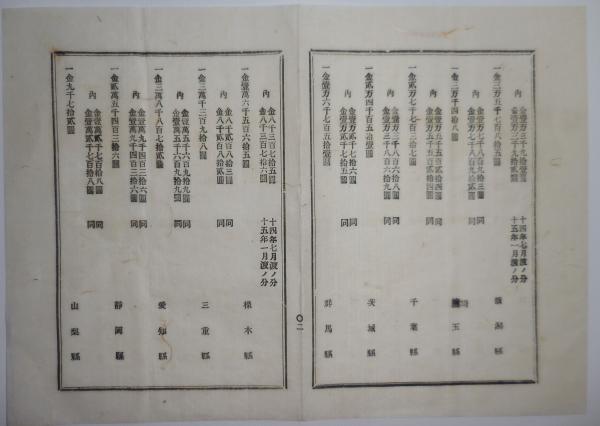 內 金壹万三千九拾壹圓 十四年七月渡ノ分
金壹万三千九拾貳圓 十五年一月渡ノ分
一金三万五千七百八拾五圓 新潟縣
內 金壹万七千八百九拾三圓 同
金壹万七千八百九拾貳圓
一金三万千四拾八圓 埼玉縣
內 金壹万五千五百貳拾四圓 同
金壹万五千五百貳拾四圓
一金貳万七千七百三拾七圓 千葉縣
內 金壹万三千八百六拾八圓 同
金壹万三千八百六拾九圓
一金貳万四千百五拾壹圓 茨城縣
內 金壹万貳千七拾六圓 同
金壹万貳千七拾五圓
一金壹万六千七百五拾壹圓 群馬縣
〇二
內 金八千三百七拾五圓 十四年七月渡ノ分
金八千三百七拾六圓 十五年一月渡ノ分
一金壹萬六千五百六拾五圓 栃木縣
內 金八千貳百八拾三圓 同
金八千貳百八拾貳圓
一金三萬千三百九拾八圓 三重縣
內 金壹萬五千六百九拾九圓 同
金壹萬五千六百九拾九圓
一金三萬八千八百七拾貳圓 愛知縣
內 金壹萬九千四百三拾六圓 同
金壹萬九千四百三拾六圓
一金貳萬五千四百三拾六圓 靜岡縣
內 金壹萬貳千七百拾八圓 同
金壹萬貳千七百拾八圓
一金九千七拾貳圓 山梨縣